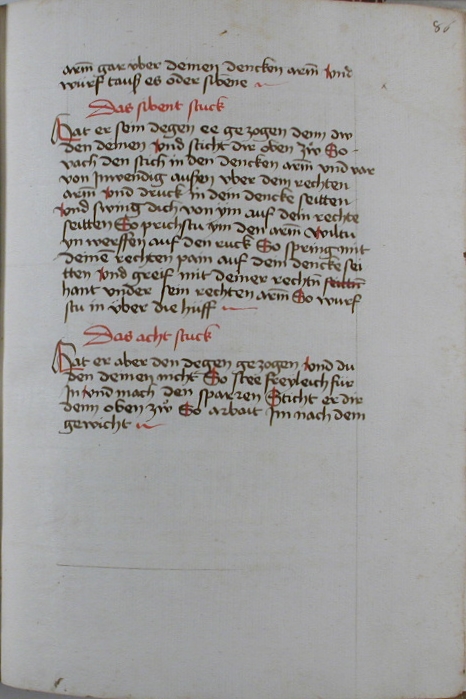 86
arm̄ gar vber deinen dencken arm̄ Vnd
wurf es oder
Das sibent stuck
Hat er sein degen ee gezogen denn dw
den deinen Vnd sticht dir oben zẘ So
vach den stich in den dencken arm̄ vnd var
von Inwendig außen vber dem rechten
arm̄ Vnd druck in dein dencke seitten
Vnd swing dich von ym auf dein rechte
seitten So prichstu ym den arm̄ Wiltu
yn werffen auf den ruck So spring mit
deinē rechten pain auf dein dencke sei
tten Vnd greif mit deiner rechtn̄
hant vnder sein rechten arm̄ So wurf
stu in vber die huff
Das acht stuck
Hat er aber den degen gezogen Vnd du
den deinen nicht So stee freyleich für
In Vnd mach den sparren Sticht er dir
denn oben zẘ So arbait Im nach dem
gewicht